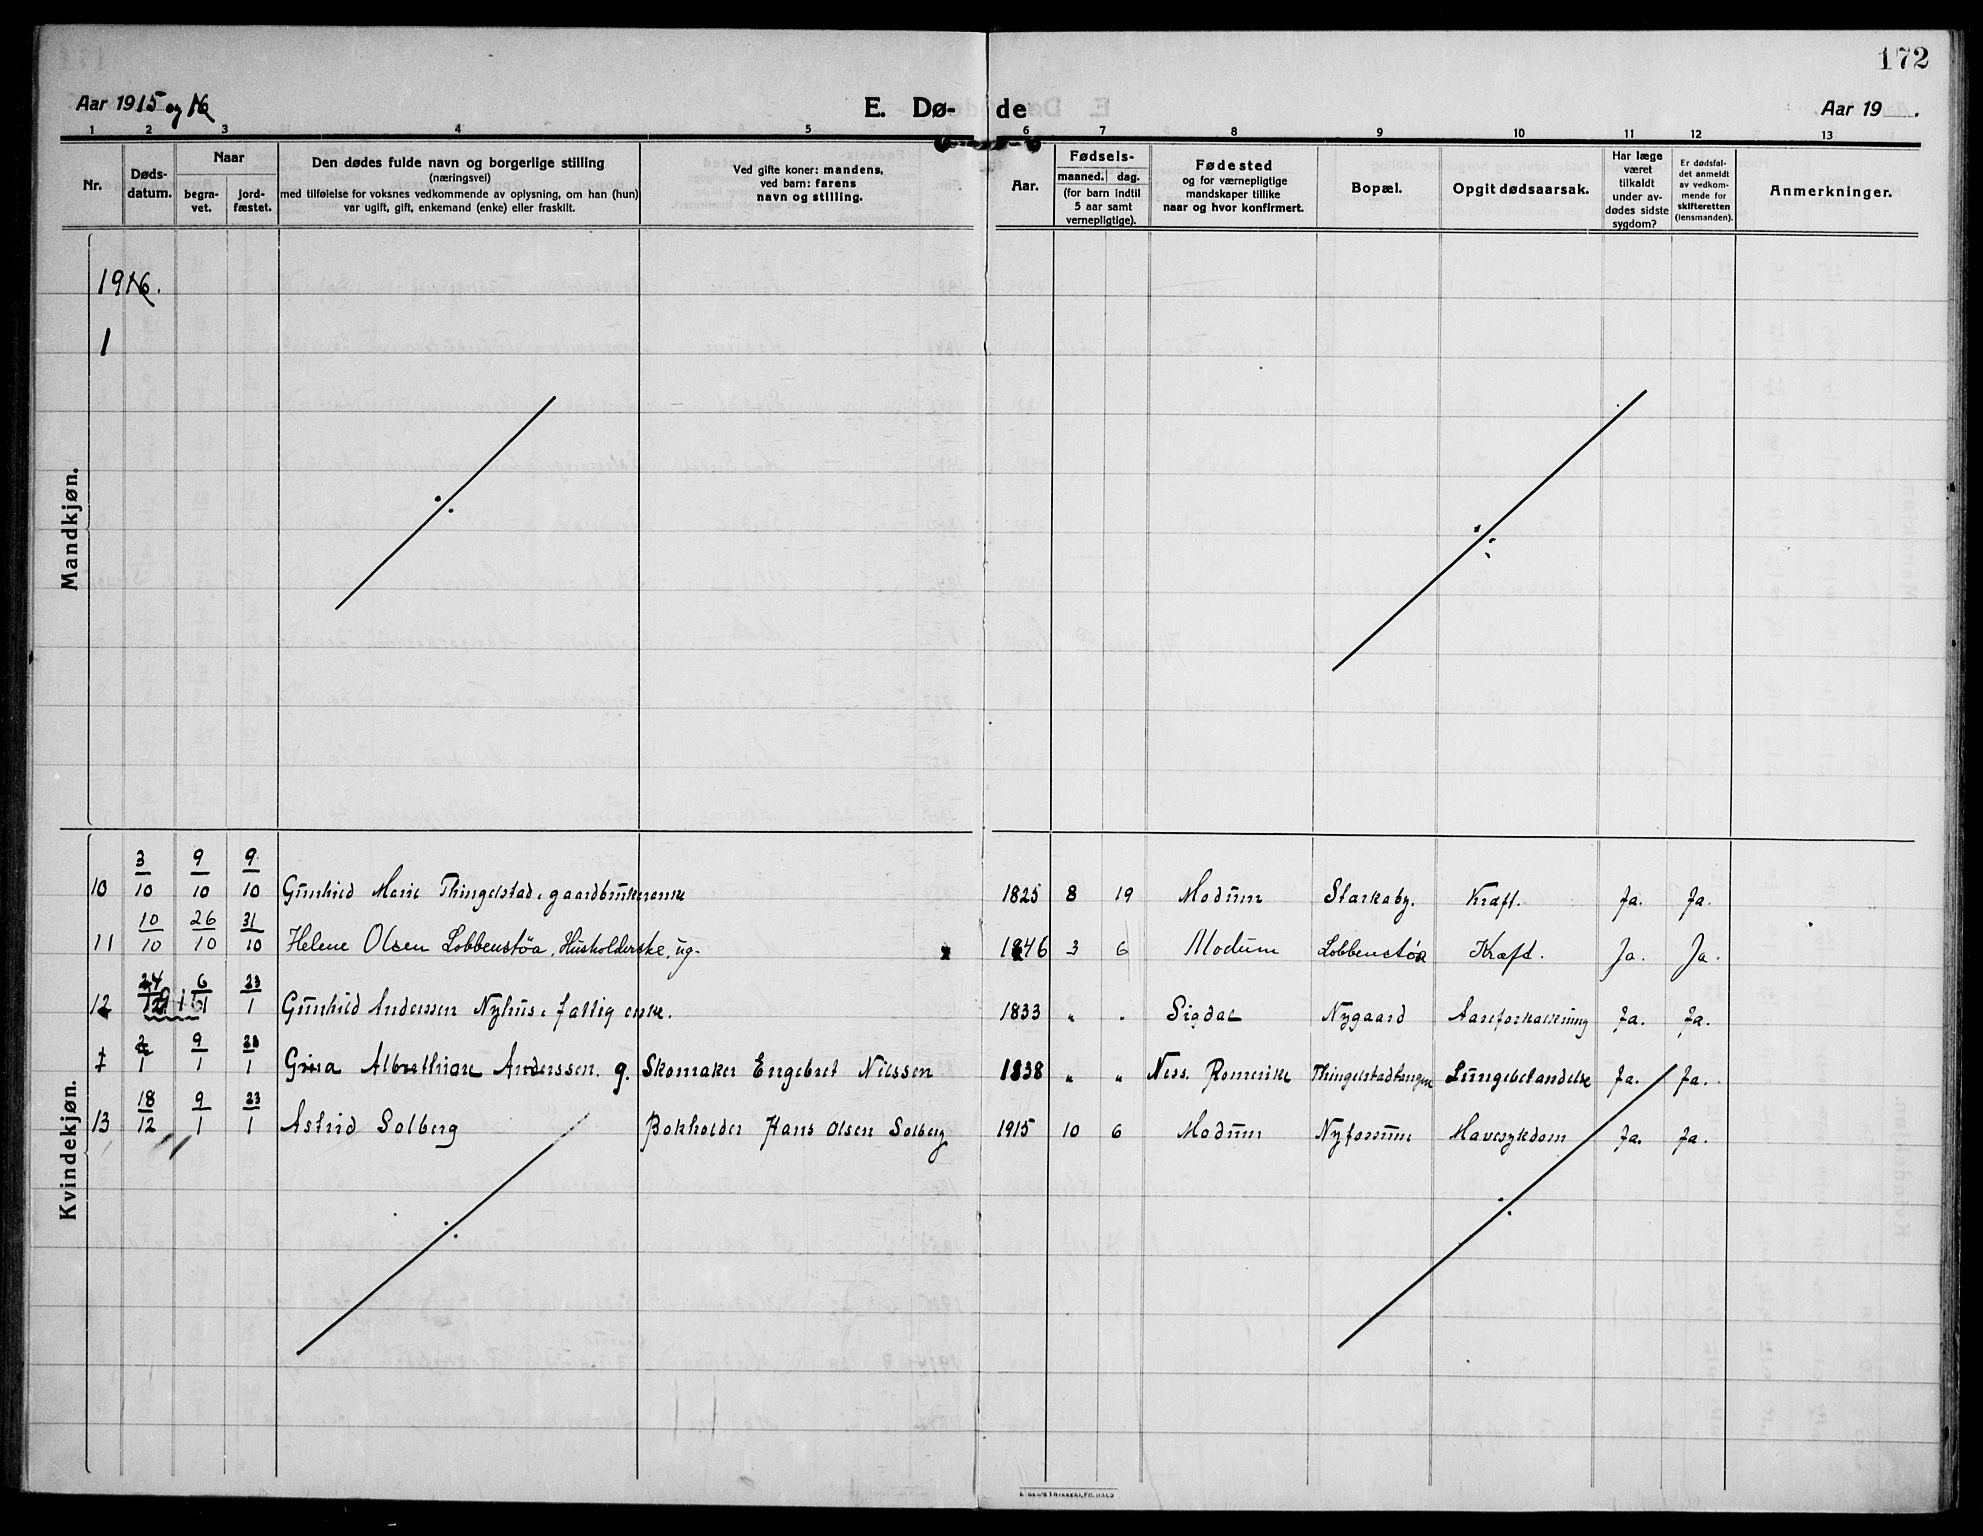 172
Aar 1915 og 16
E. Dø- de
Aar 19 .
1 2 3 4 5 6 7 8 9 10 11 12 13
Nr.
Døds-
datum.
Naar
begra-
vet.
jord-
fæstet.
Den dødes fulde navn og borgerlige stilling
(næringsvei)
med tilføielse for voksnes vedkommende av oplysning, om han (hun)
var ugift, gift, enkemand (enke) eller fraskilt.
Ved gifte koner: mandens,
ved barn: farens
navn og stilling.
Aar.
Fødsels-
maaned. dag.
(for barn indtil
5 aar samt
vernepligtige).
Fødested
og for værnepligtige
mandskaper tillike
naar og hvor konfirmert.
Bopæl.
Opgit dødsaarsak.
Har læge
været
tilkaldt
under av-
dødes sidste
sygdom?
Er dødsfal-
det anmeldt
av vedkom-
mende for
skifteretten
(lensmanden).
Anmerkninger.
Mandkjøn.
1916.
1
Kvindekjøn.
10 3/10 9/10 9/10 Gunhild Marie Thingelstad, gaardbrukerenke 1825 8 19 Modum Starkaby. Kræft. Ja. Ja.
11 10/10 26/10 31/10 Helene Olsen Lobbenstøa, Husholderske, ug. 1846 3 6 Modum Lobbenstøa Kræft. Ja. Ja.
12 24/12 6/1 23/1 Gunhild Anderssen Nyhus, fattig enke. 1833 " " Sigdal Nygaard Aareforkalkning Ja. Ja.
1 2/1 9/1 23/1 Grina Albrethine Anderssen. g. Skomaker Engebret Nilssen 1838 " " Ness. Romerike Thingelstadtangen Lungebetændelse Ja. Ja.
13 18/12 9/1 23/1 Astrid Solberg Bokholder Hans Olsen Solberg 1915 10 6 Modum Nyfossum Mavesykdom Ja. Ja.